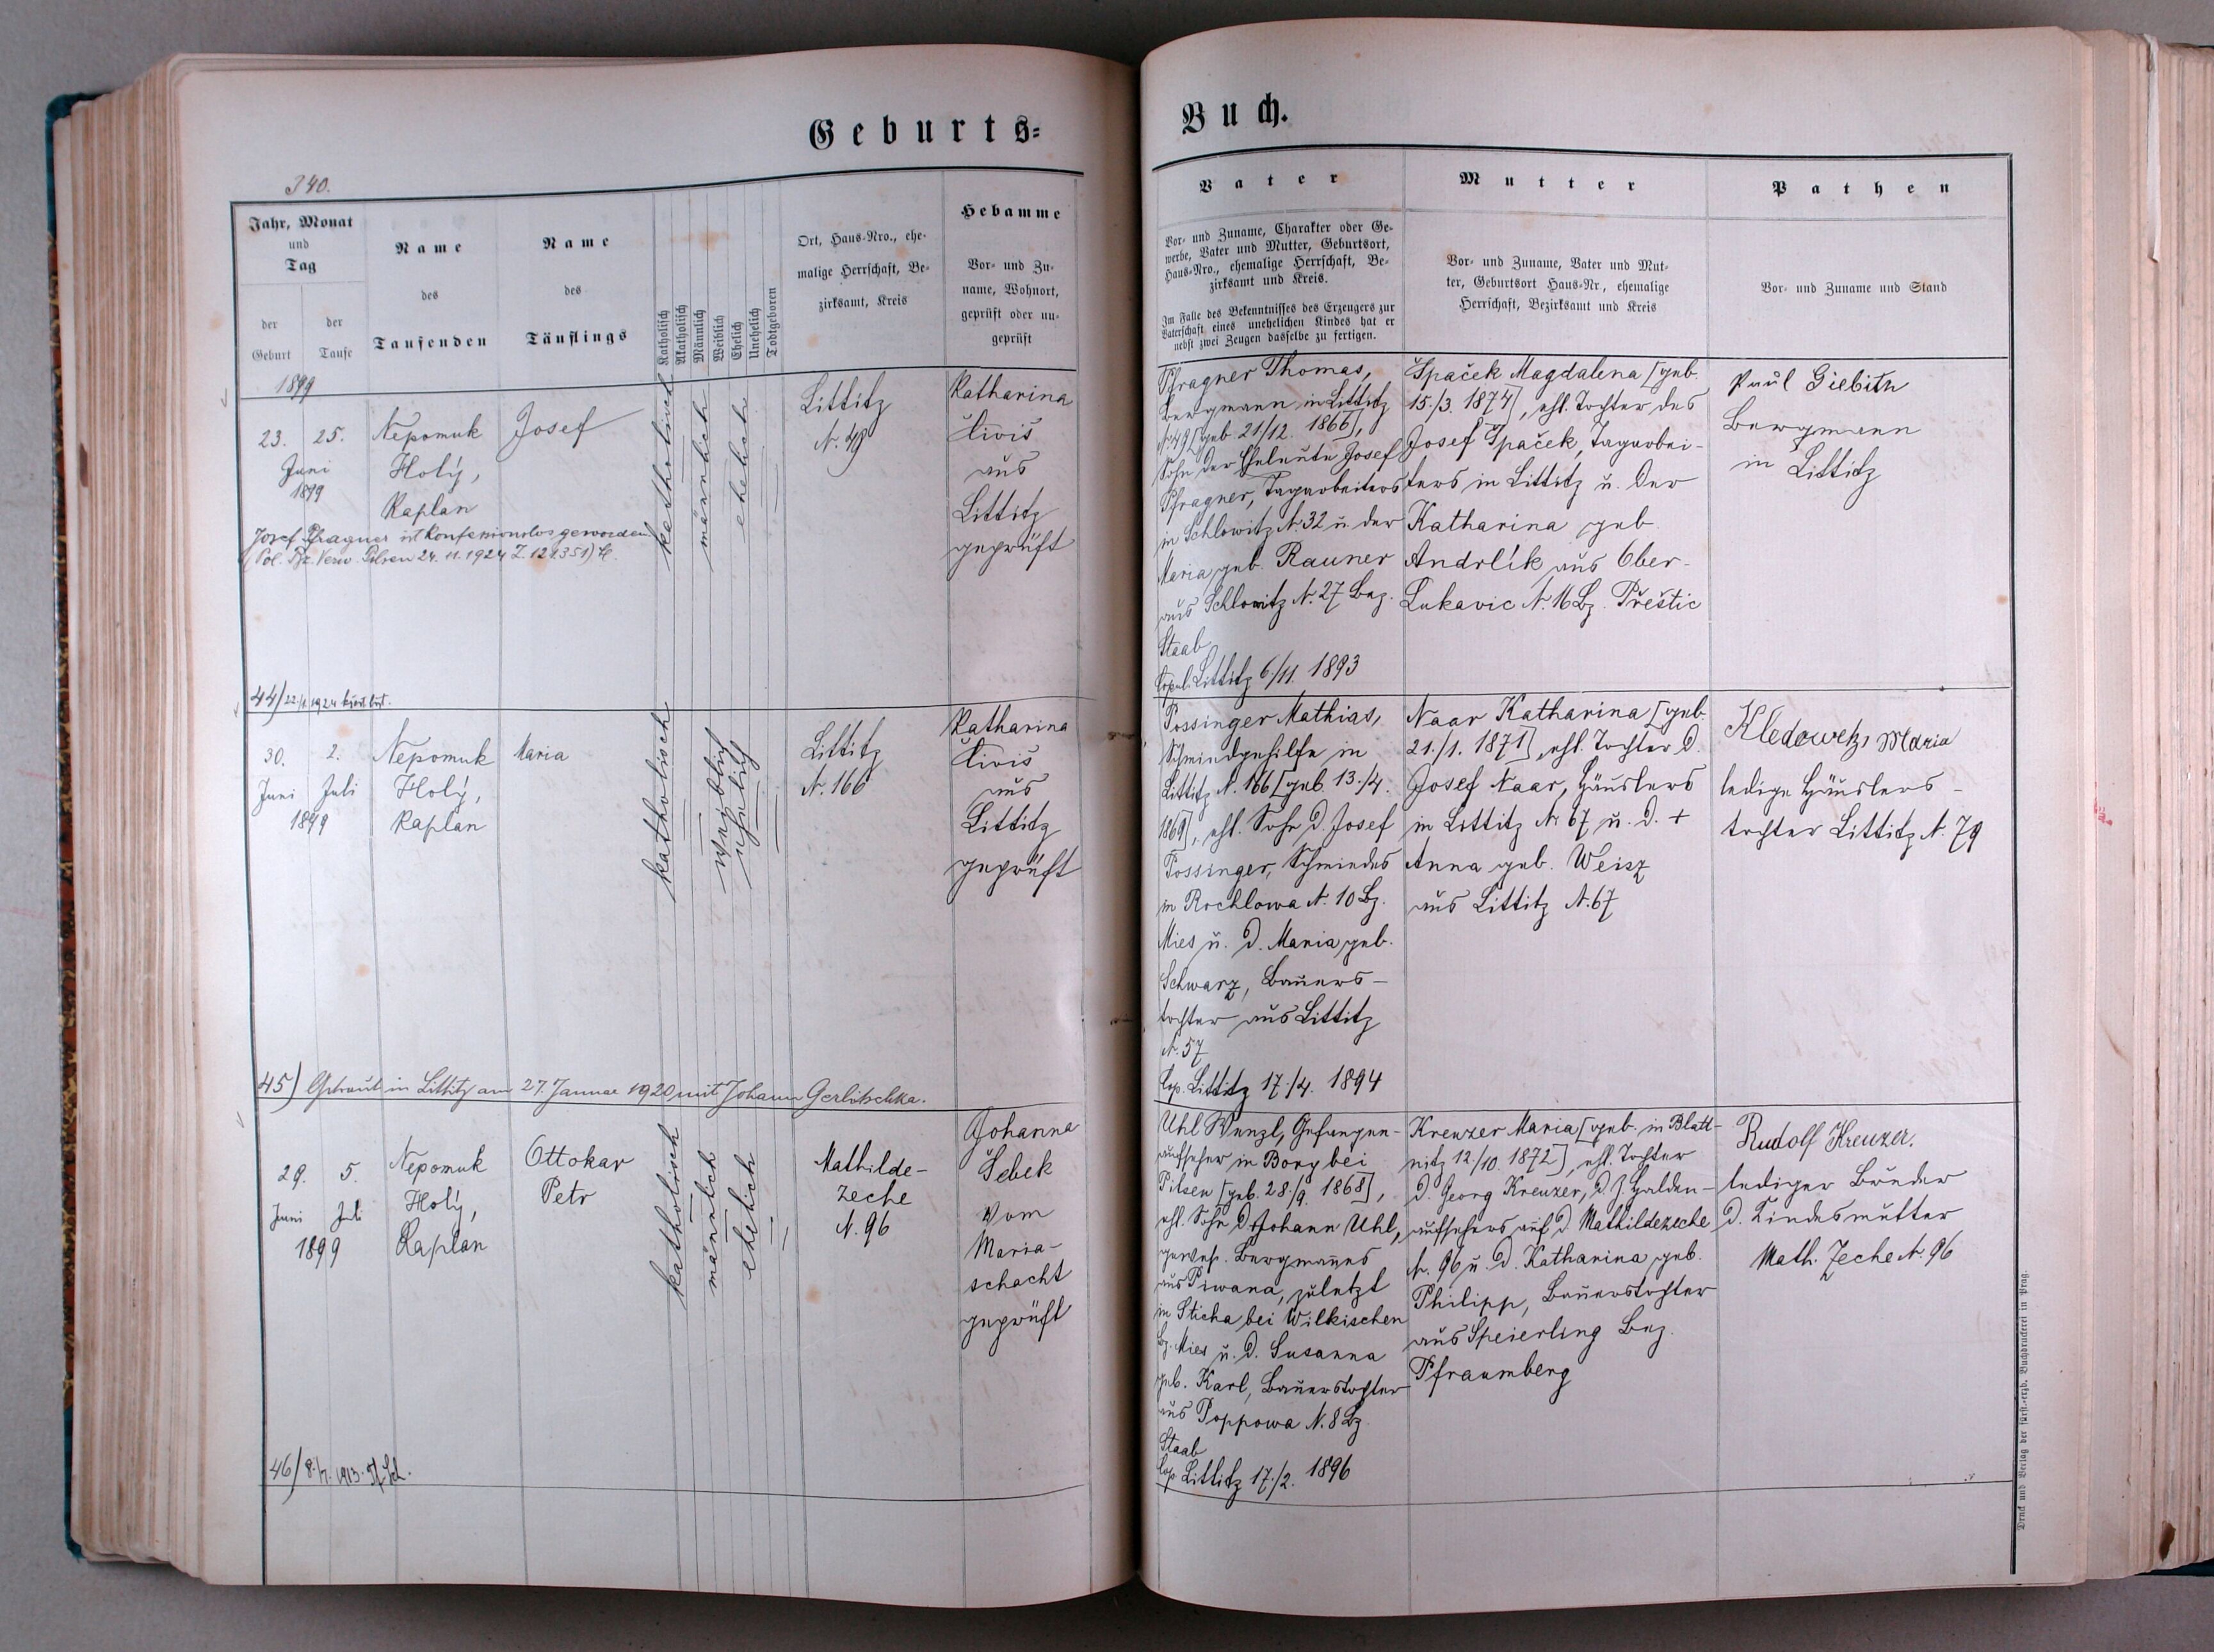 Geburts-
Buch.
340.
Jahr, Monat
und
Tag
der
Geburt
der
Taufe
Name
des
Taufenden
Name
des
Täuflings
Katholisch
Akatholisch
Männlich
Weiblich
Ehelich
Unehelich
Todtgeboren
Ort, Haus-Nro., ehe-
malige Herrschaft, Be-
zirksamt, Kreis
Hebamme
Vor- und Zu-
name, Wohnort,
geprüft oder un-
geprüft
Vater
Vor- und Zuname, Charakter oder Ge-
werbe, Vater und Mutter, Geburtsort,
Haus-Nro., ehemalige Herrschaft, Be-
zirksamt und Kreis.
Im Falle des Bekenntnisses des Erzeugers zur
Vaterschaft eines unehelichen Kindes hat er
nebst zwei Zeugen dasselbe zu fertigen.
Mutter
Vor- und Zuname, Vater und Mut-
ter, Geburtsort Haus-Nr, ehemalige
Herrschaft, Bezirksamt und Kreis
Pathen
Vor- und Zuname und Stand
1899
23. 25.
Juni
1899
Nepomuk
Holý,
Kaplan
Josef
katholisch
männlich
ehelich
Littitz
N. 49
Katharina
Čivis
aus
Littitz
geprüft
Josef Pfragner ist konfessionslos geworden
(Pol. Bz. Verw. Pilsen 24. 11. 1924 Z. 121351)
44)
Pfragner Thomas,
Bergmann in Littitz
N 49 [geb. 21/12. 1866],
Sohn der Eheleute Josef
Pfragner, Tagarbeiters
in Schlowitz N 32 u. der
Maria geb. Rauner
aus Schlowitz N. 27 Bez.
Staab
Copul. Littitz 6/11. 1893
Špaček Magdalena [geb.
15./3. 1874], ehl. Tochter des
Josef Špaček, Tagarbei-
ters in Littitz u. der
Katharina geb.
Andrlík aus Ober-
Lukavic N. 16 Bz. Přeštic
Paul Giebith
Bergmann
in Littitz
30. 2.
Juni Juli
1899
Nepomuk
Holý,
Kaplan
Maria
katholisch
weiblich
ehelich
Littitz
N. 166
Katharina
Čivis
aus
Littitz
geprüft
45) Getraut in Littitz am 27. Januar 1920 mit Johann Gerlitschka.
Possinger Mathias,
Schmiedgehilfe in
Littitz N. 166 [geb. 13./4.
1869], ehl. Sohn d. Josef
Possinger, Schmiedes
in Rochlowa N. 10 Bz.
Mies u. d. Maria geb.
Schwarz, Bauers-
tochter aus Littitz
N. 57
Cop. Littitz 17./4. 1894
Naar Katharina [geb.
21./1. 1871], ehl. Tochter d.
Josef Naar, Häuslers
in Littitz N. 67 u. d. +
Anna geb. Weisz
aus Littitz N. 67
Kledowetz Maria
ledige Häuslers-
tochter Littitz N. 79
29. 5.
Juni Juli
1899
Nepomuk
Holý,
Kaplan
Ottokar
Petr
katholisch
männlich
ehelich
Mathilde-
zeche
N. 96
Johanna
Šebek
vom
Maria-
schacht
geprüft
46) 8./7. 1913.
Uhl Wenzl, Gefangen-
aufseher in Bory bei
Pilsen [geb. 28./9. 1868],
ehl. Sohn d. Johann Uhl,
gewes. Bergmannes
aus Piwana, zuletzt
in Sticha bei Wilkischen
Bz. Mies u. d. Susanna
geb. Karl, Bauerstochter
aus Poppowa N. 8 Bz.
Staab
Cop Littitz 17./2. 1896
Kreuzer Maria [geb. in Blatt-
nitz 12./10. 1872], ehl. Tochter
d. Georg Kreuzer, d. Z. Halden-
aufsehers auf d. Mathildezeche
N. 96 u. d. Katharina geb.
Philipp, Bauerstochter
aus Speierling Bez.
Pfraumberg
Rudolf Kreuzer.
lediger Bruder
d. Kindesmutter
Math. Zeche N. 96
Druck und Verlag der fürst.-erzb. Buchdruckerei in Prag.